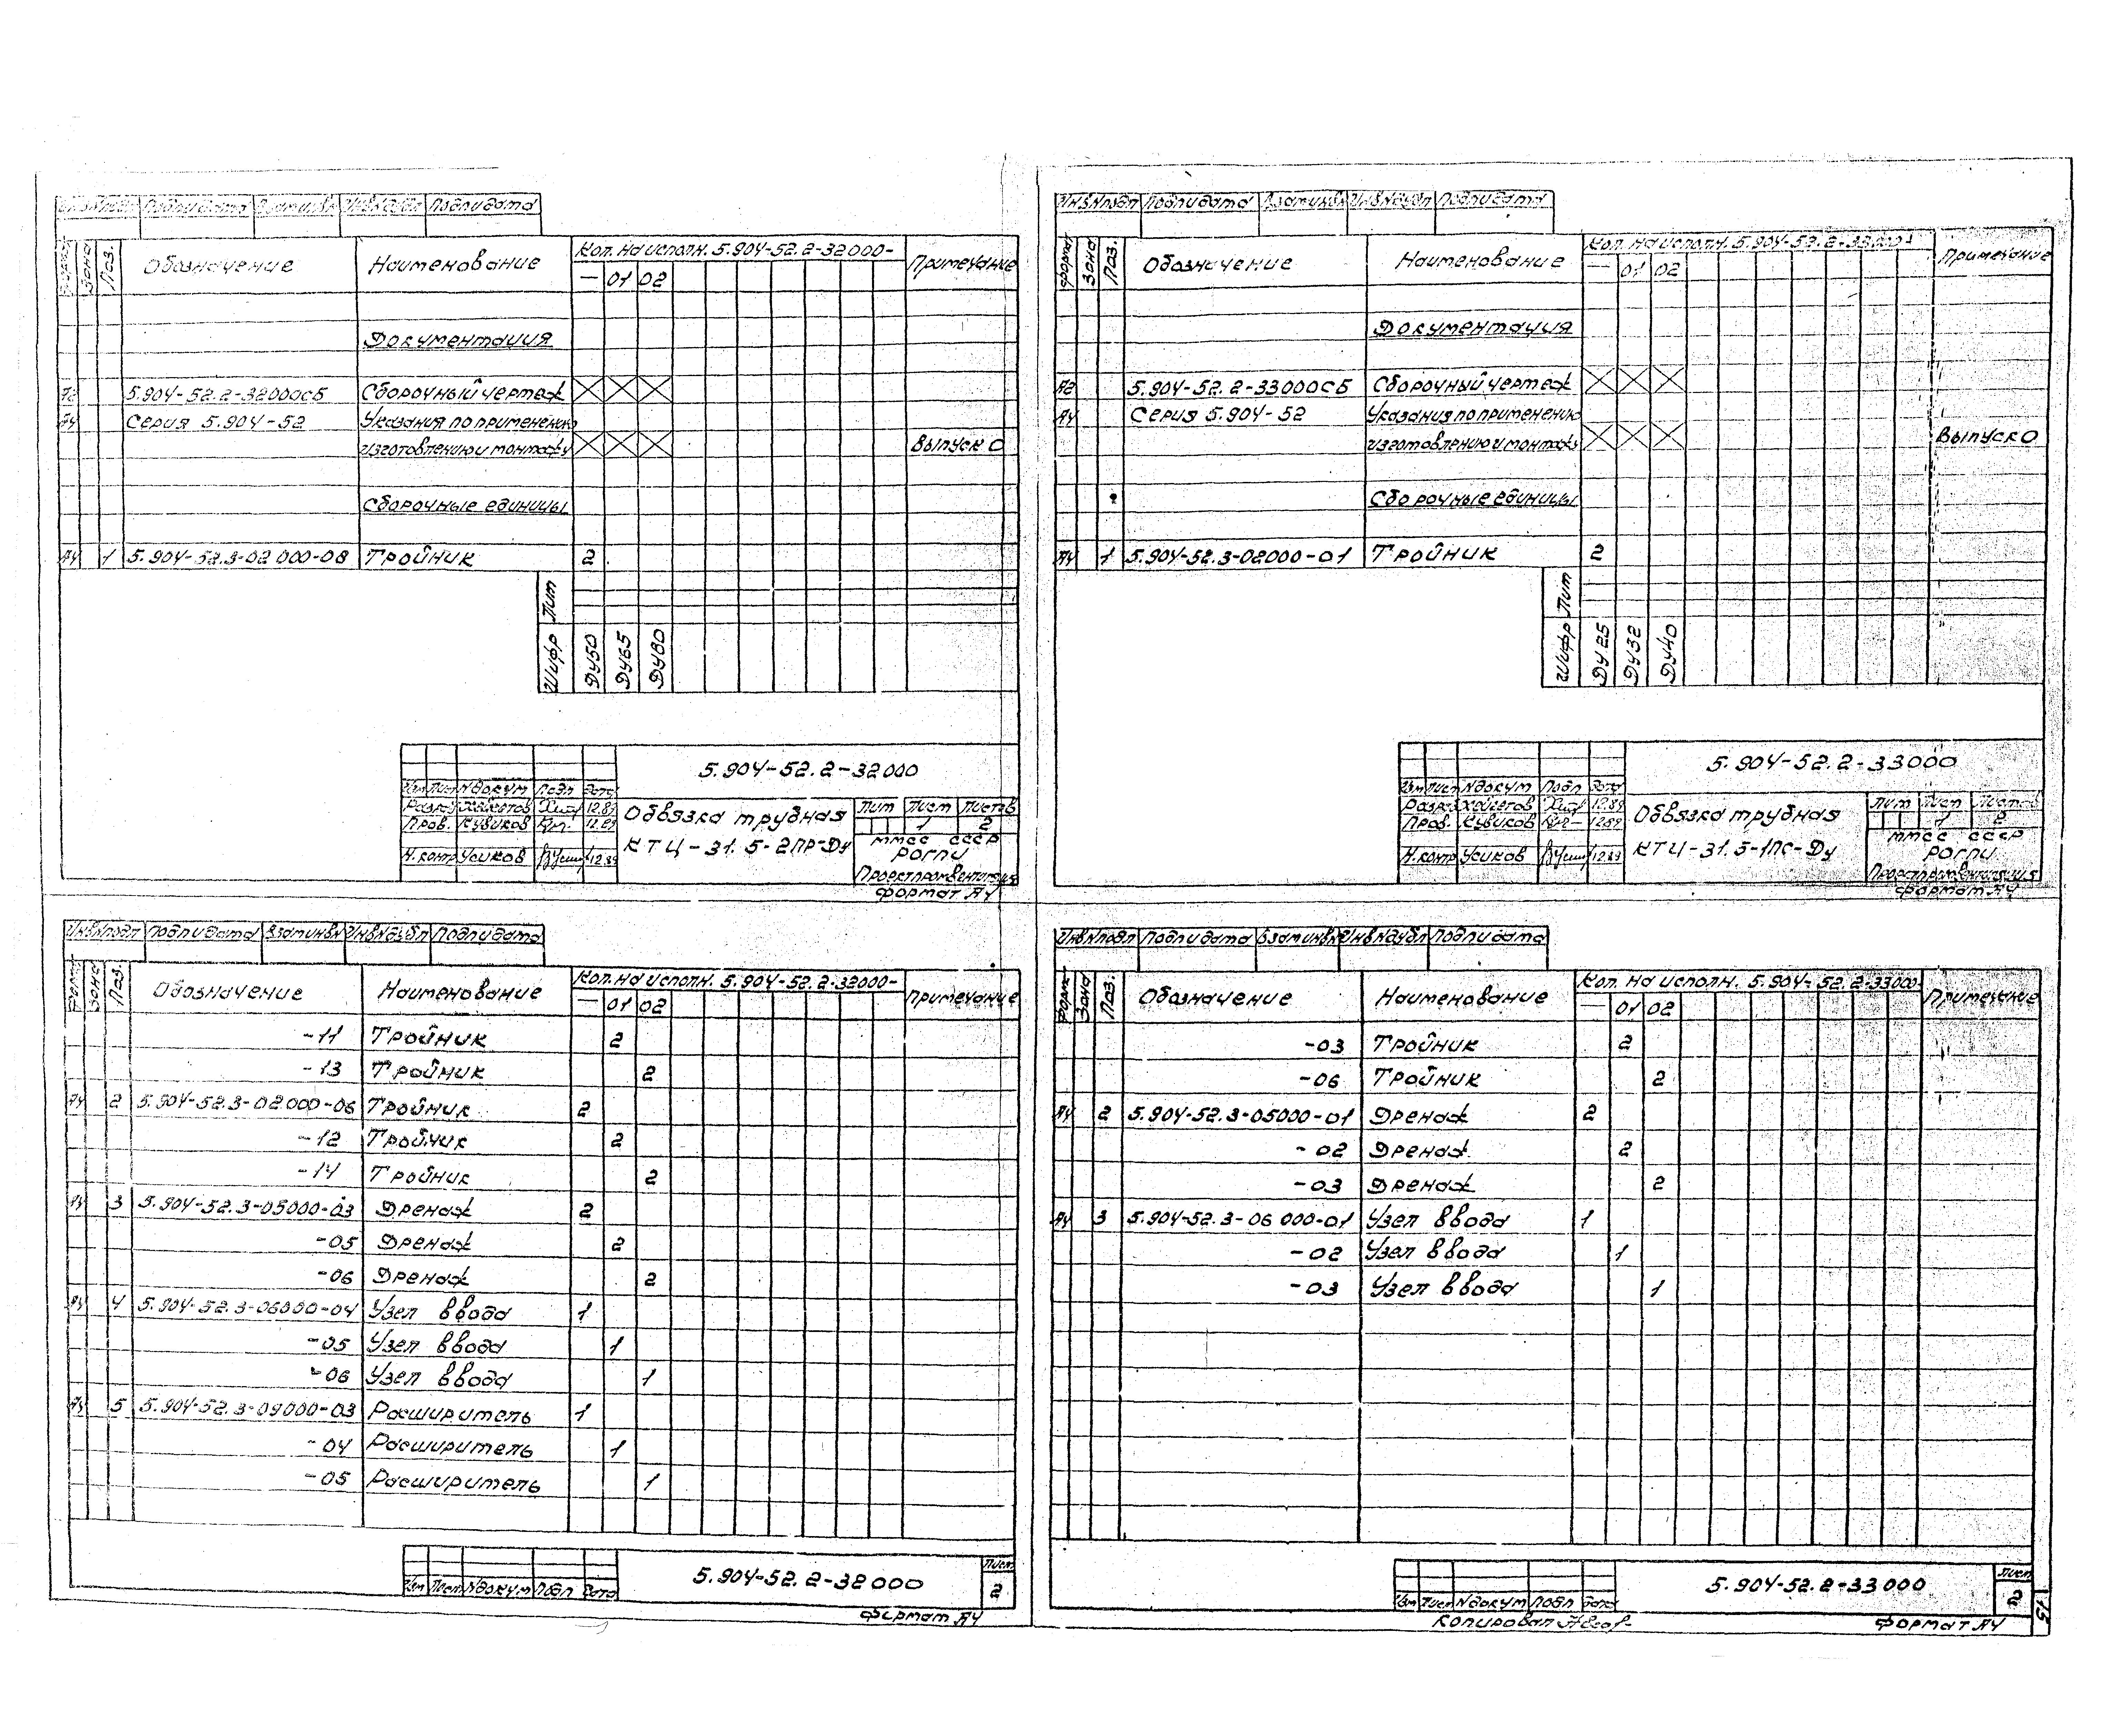 Инв.N подл Подп и дата Взам инв N Инв N дубл Подп и дата
Формат Зона Поз. Обозначение Наименование Кол. на исполн. 5.904-52.2-32000- Примечание
— 01 02
Документация
А2 5.904-52.2-32000СБ Сборочный чертеж
А4 Серия 5.904-52 Указания по применению
изготовлению и монтажу Выпуск 0
Сборочные единицы
А4 1 5.904-52.3-02000-08 Тройник 2
Шифр Лит
Ду50 Ду65 Ду80
5.904-52.2-32000
Изм Лист N докум Подп Дата
Разраб Хайсетов 12.89
Пров. Кувиков 12.89
Н.контр Усиков 12.89
Обвязка трубная
КТЦ-31.5-2ПР-Ду
Лит Лист Листов
1 2
ММСС СССР
РОГПИ
Проектпромвентиляция
Формат А4
Инв.N подл Подп и дата Взам инв N Инв N дубл Подп и дата
Формат Зона Поз. Обозначение Наименование Кол. на исполн. 5.904-52.2-33000- Примечание
— 01 02
Документация
А2 5.904-52.2-33000СБ Сборочный чертеж
А4 Серия 5.904-52 Указания по применению
изготовлению и монтажу Выпуск 0
Сборочные единицы
А4 1 5.904-52.3-02000-01 Тройник 2
Шифр Лит
Ду25 Ду32 Ду40
5.904-52.2-33000
Изм Лист N докум Подп Дата
Разраб Хайсетов 12.89
Пров. Кувиков 12.89
Н.контр Усиков 12.89
Обвязка трубная
КТЦ-31.5-1ПС-Ду
Лит Лист Листов
1 2
ММСС СССР
РОГПИ
Проектпромвентиляция
Формат А4
Инв.N подл Подп и дата Взам инв N Инв N дубл Подп и дата
Форм Зона Поз. Обозначение Наименование Кол. на исполн. 5.904-52.2-32000- Примечание
— 01 02
-11 Тройник 2
-13 Тройник 2
А4 2 5.904-52.3-02000-06 Тройник 2
-12 Тройник 2
-14 Тройник 2
А4 3 5.904-52.3-05000-03 Дренаж 2
-05 Дренаж 2
-06 Дренаж 2
А4 4 5.904-52.3-06000-04 Узел ввода 1
-05 Узел ввода 1
-06 Узел ввода 1
А4 5 5.904-52.3-09000-03 Расширитель 1
-04 Расширитель 1
-05 Расширитель 1
Изм Лист N докум Подп Дата
5.904-52.2-32000
Лист
2
Формат А4
Инв.N подл Подп и дата Взам инв N Инв N дубл Подп и дата
Форм Зона Поз. Обозначение Наименование Кол. на исполн. 5.904-52.2-33000- Примечание
— 01 02
-03 Тройник 2
-06 Тройник 2
А4 2 5.904-52.3-05000-01 Дренаж 2
-02 Дренаж 2
-03 Дренаж 2
А4 3 5.904-52.3-06000-01 Узел ввода 1
-02 Узел ввода 1
-03 Узел ввода 1
Изм Лист N докум Подп Дата
5.904-52.2-33000
Лист
2
Копировал
Формат А4
15